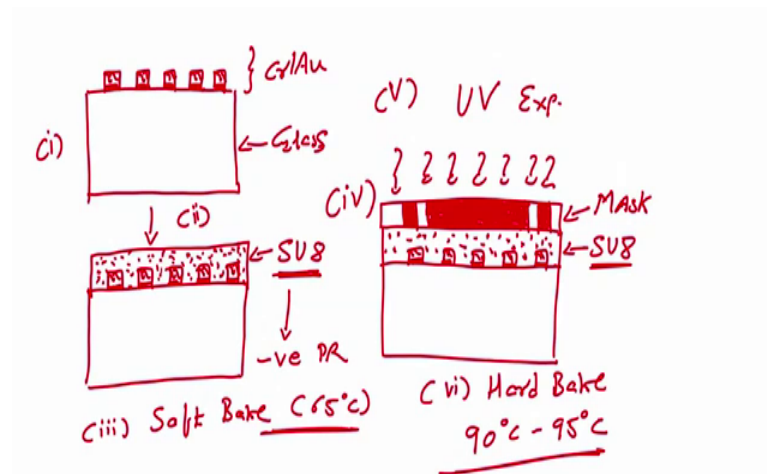 Cr/Au
(i)
Glass
(ii)
SU8
-ve PR
(iii) Soft Bake (65°c)
(V) UV Exp.
(iV)
MAsk
SU8
(vi) Hard Bake
90°c - 95°C